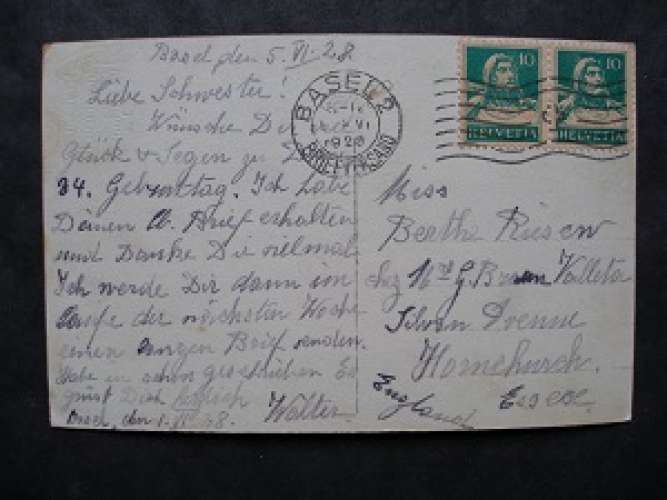 Basel den 5. VI. 28.
Liebe Schwester!
Wünsche Di
Glück & Segen zu
34. Geburtstag. Ich habe
Dänen lb. Brief erhalten
und Danke Di vielmal
Ich werde Dir dann im
Laufe der nächsten Woche
einen langen Brief senden.
Habe in schon geschrieben Es
grüst Dich
Walter
Basel, den
BASEL 2
BRIEFVERSAND
10
HELVETIA
10
HELVETIA
Miss
Bertha Riesen
chez G. Valleta
Silvan Avenue
Hornchurch.
Essex.
England